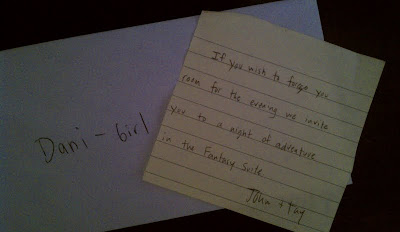 Dani - Girl
If you wish to forgo you
room for the evening we invite
you to a night of adventure
in the Fantasy Suite
John + Tay